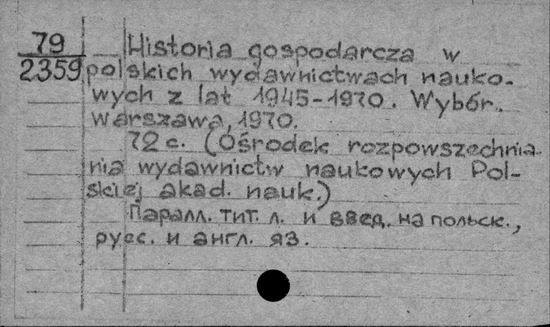 79 Historia gospodarcza w
2359 polskich wydawnictwach nauko-
wych z lat 1945-1970. Wybór.
Warszawa, 1970.
72 c. (Ośrodek rozpowszechnia-
nia wydawnictw naukowych Pol-
skiej akad. nauk.)
Паралл. тит. л. и введ. на польск.,
русс. и англ. яз.